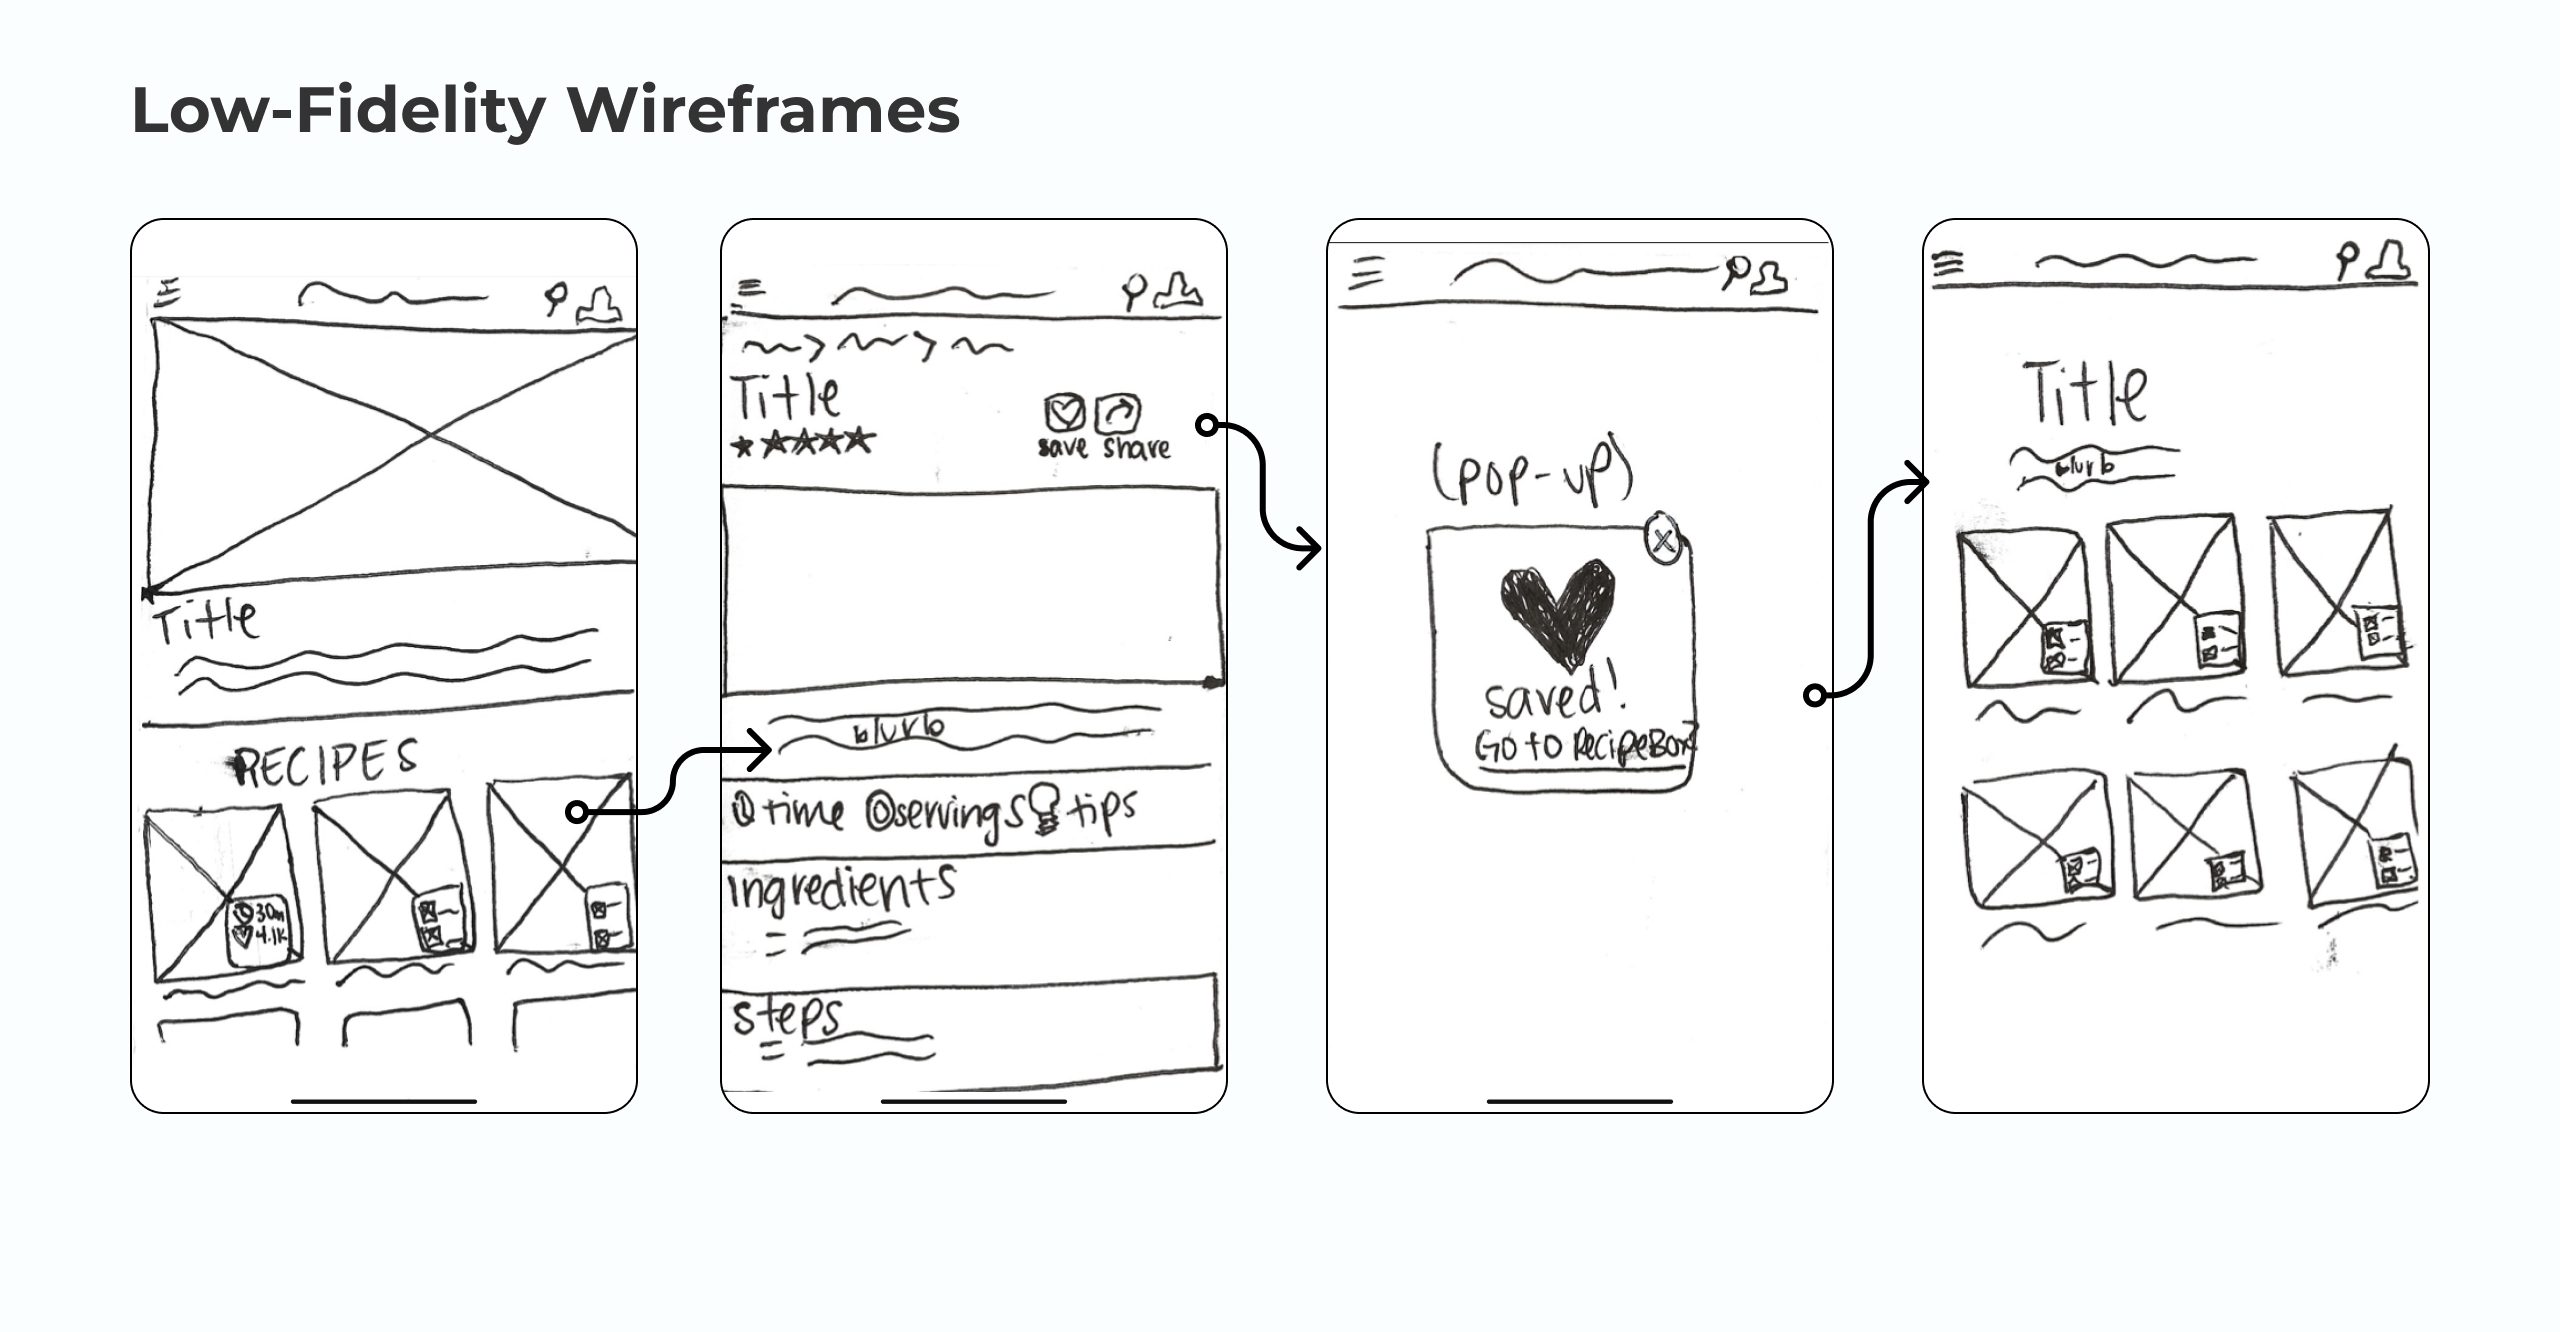 Low-Fidelity Wireframes
Title
RECIPES
30m
4.1K
Title
save share
blurb
time servings tips
ingredients
steps
(pop-up)
x
saved!
Go to RecipeBox?
Title
blurb